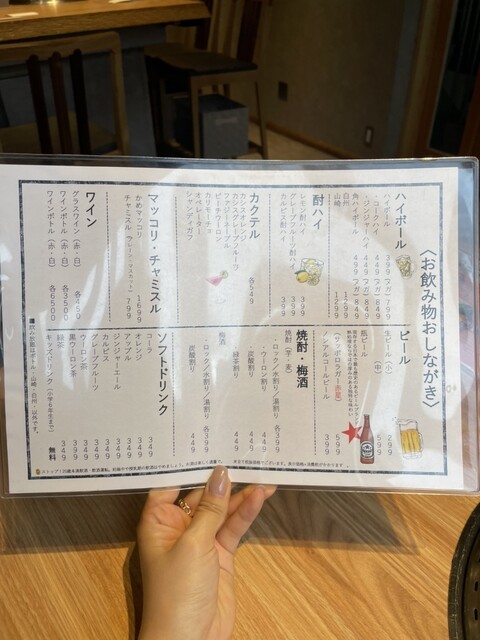 〈お飲み物おしながき〉
ビール
生ビール（小） 299
（中） 599
瓶ビール 599
（サッポロラガー赤星）
ノンアルコールビール 399
ハイボール
ハイボール 399（メガ）799
コークハイ 449（メガ）849
ジンジャーハイ 449（メガ）849
角ハイボール 449（メガ）849
白州 1299
山崎 1299
酎ハイ
レモン酎ハイ 399
グレープフルーツ酎ハイ 399
カルピス酎ハイ 399
カクテル 各549
カシスオレンジ
カシスグレープフルーツ
ファジーネーブル
ピーチウーロン
カリモーチョ
オペレーター
シャンディガフ
マッコリ・チャミスル
かめマッコリ 1699
チャミスル（プレーン・マスカット） 1199
ワイン
グラスワイン（赤・白） 各450
ワインボトル（赤・白） 各3500
ワインボトル（赤・白） 各6500
焼酎・梅酒
焼酎（芋・麦）
・ロック／水割り／湯割り 各399
・ウーロン割り 449
・緑茶割り 449
・炭酸割り 449
梅酒
・ロック／水割り／湯割り 各399
・炭酸割り 449
ソフトドリンク
コーラ 349
オレンジ 349
アップル 349
ジンジャーエール 349
カルピス 349
グレープフルーツ 349
ウーロン茶 349
黒ウーロン茶 399
緑茶 349
キッズドリンク（小学6年生まで） 無料